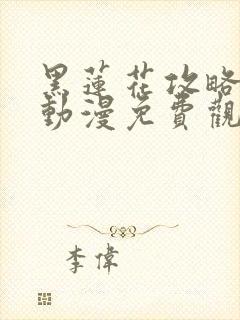 黑蓮花攻略
動漫免費觀
李偉